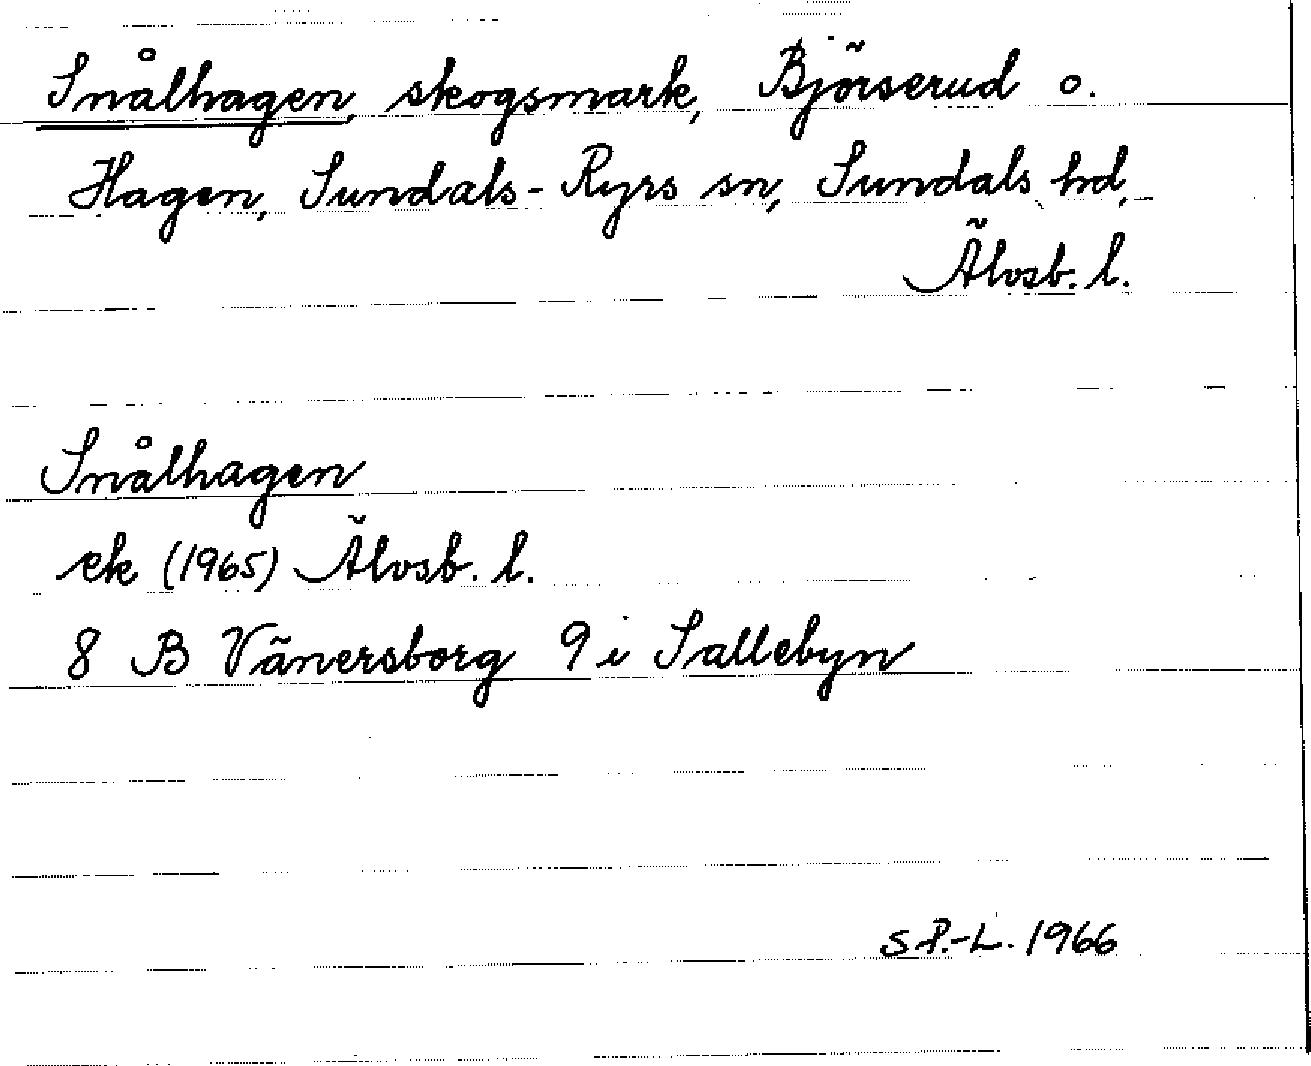 Snålhagen, skogsmark, Björserud o.
Hagen, Sundals-Ryrs sn, Sundals hd,
Älvsb. l.
Snålhagen
ek (1965) Älvsb. l.
8 B Vänersborg 9 i Sallebyn
S P.-L. 1966